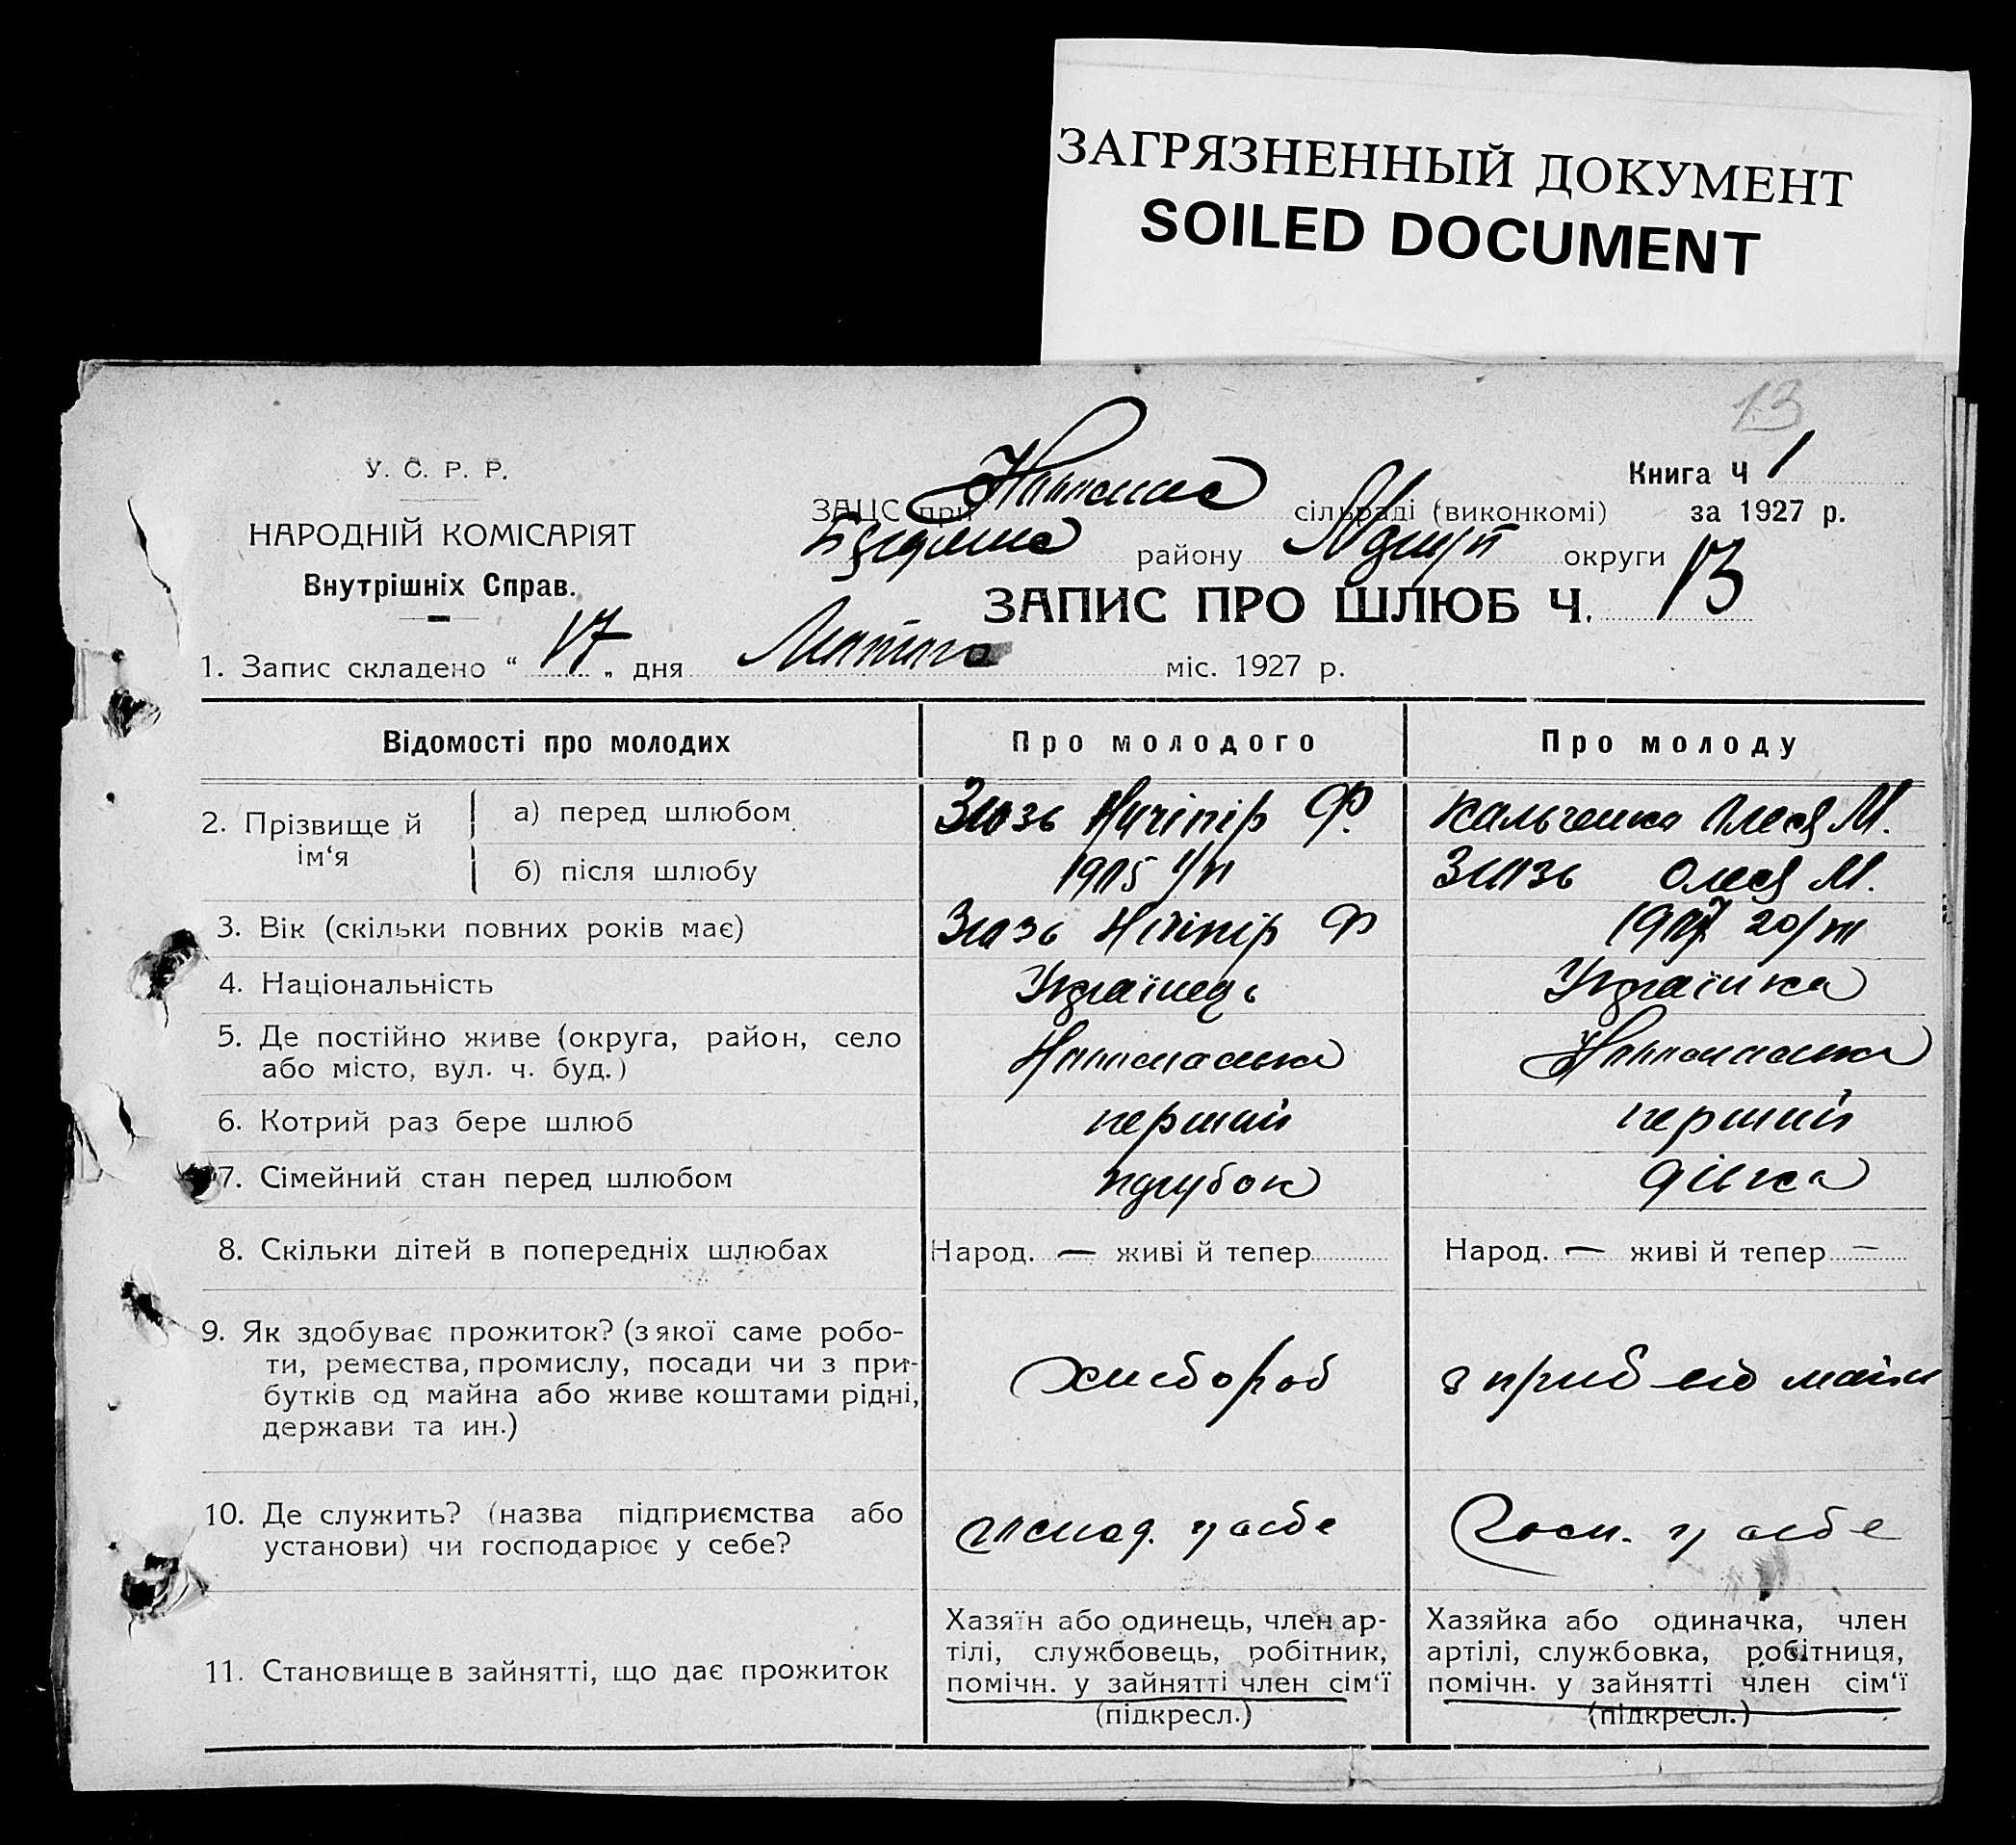 ЗАГРЯЗНЕННЫЙ ДОКУМЕНТ
SOILED DOCUMENT
13
У. С. Р. Р.
НАРОДНІЙ КОМІСАРІЯТ
Внутрішніх Справ.
Книга Ч 1
ЗАЦС при сільраді (виконкомі) за 1927 р.
району округи
ЗАПИС ПРО ШЛЮБ Ч. 13
1. Запис складено “ 17 „ дня Лютого міс. 1927 р.
Відомості про молодих
Про молодого
Про молоду
2. Прізвище й ім‘я
а) перед шлюбом
Ничіпір Ф.
Кальченко Олеся М.
б) після шлюбу
1905
Олеся М.
3. Вік (скільки повних років має)
Нічіпір Ф
1907 20/III
4. Національність
Українець
Українка
5. Де постійно живе (округа, район, село
або місто, вул. ч. буд.)
6. Котрий раз бере шлюб
перший
перший
7. Сімейний стан перед шлюбом
парубок
дівка
8. Скільки дітей в попередніх шлюбах
Народ. — живі й тепер
Народ. — живі й тепер —
9. Як здобуває прожиток? (з якої саме робо-
ти, ремества, промислу, посади чи з при-
бутків од майна або живе коштами рідні,
держави та ин.)
хлебороб
з приб від майн
10. Де служить? (назва підприємства або
установи) чи господарює у себе?
господ. у себе
Госп. у себе
11. Становище в зайнятті, що дає прожиток
Хазяїн або одинець, член ар-
тілі, службовець, робітник,
помічн. у зайнятті член сім‘ї
(підкресл.)
Хазяйка або одиначка, член
артілі, службовка, робітниця,
помічн. у зайнятті член сім‘ї
(підкресл.)